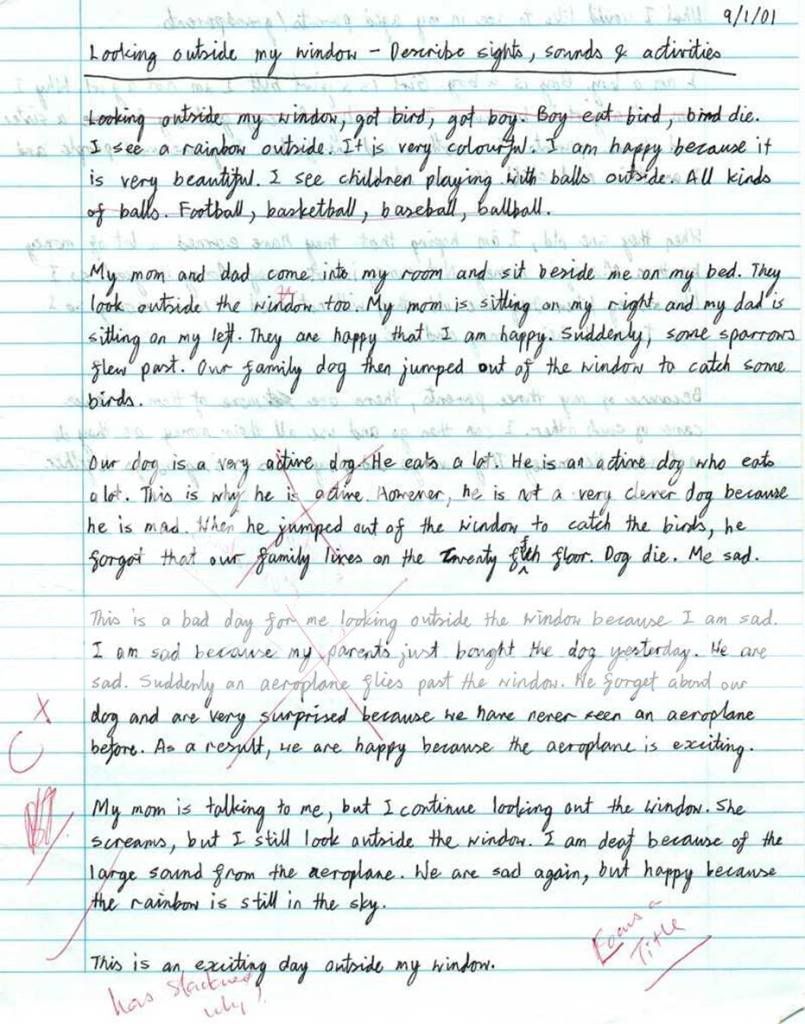 9/1/01
Looking outside my window – Describe sights, sounds & activities
Looking outside my window, got bird, got boy. Boy eat bird, bird die.
I see a rainbow outside. It is very colourful. I am happy because it
is very beautiful. I see children playing with balls outside. All kinds
of balls. Football, basketball, baseball, ballball.
My mom and dad come into my room and sit beside me on my bed. They
look outside the window too. My mom is sitting on my right and my dad is
sitting on my left. They are happy that I am happy. Suddenly, some sparrows
flew past. Our family dog then jumped out of the window to catch some
birds.
Our dog is a very active dog. He eats a lot. He is an active dog who eats
a lot. This is why he is active. However, he is not a very clever dog because
he is mad. When he jumped out of the window to catch the birds, he
forgot that our family lives on the twenty fifth floor. Dog die. Me sad.
This is a bad day for me looking outside the window because I am sad.
I am sad because my parents just bought the dog yesterday. We are
sad. Suddenly an aeroplane flies past the window. We forget about our
dog and are very surprised because we have never seen an aeroplane
before. As a result, we are happy because the aeroplane is exciting.
My mom is talking to me, but I continue looking out the window. She
screams, but I still look outside the window. I am deaf because of the
large sound from the aeroplane. We are sad again, but happy because
the rainbow is still in the sky.
Focus on
Title
This is an exciting day outside my window.
has slackened
why?